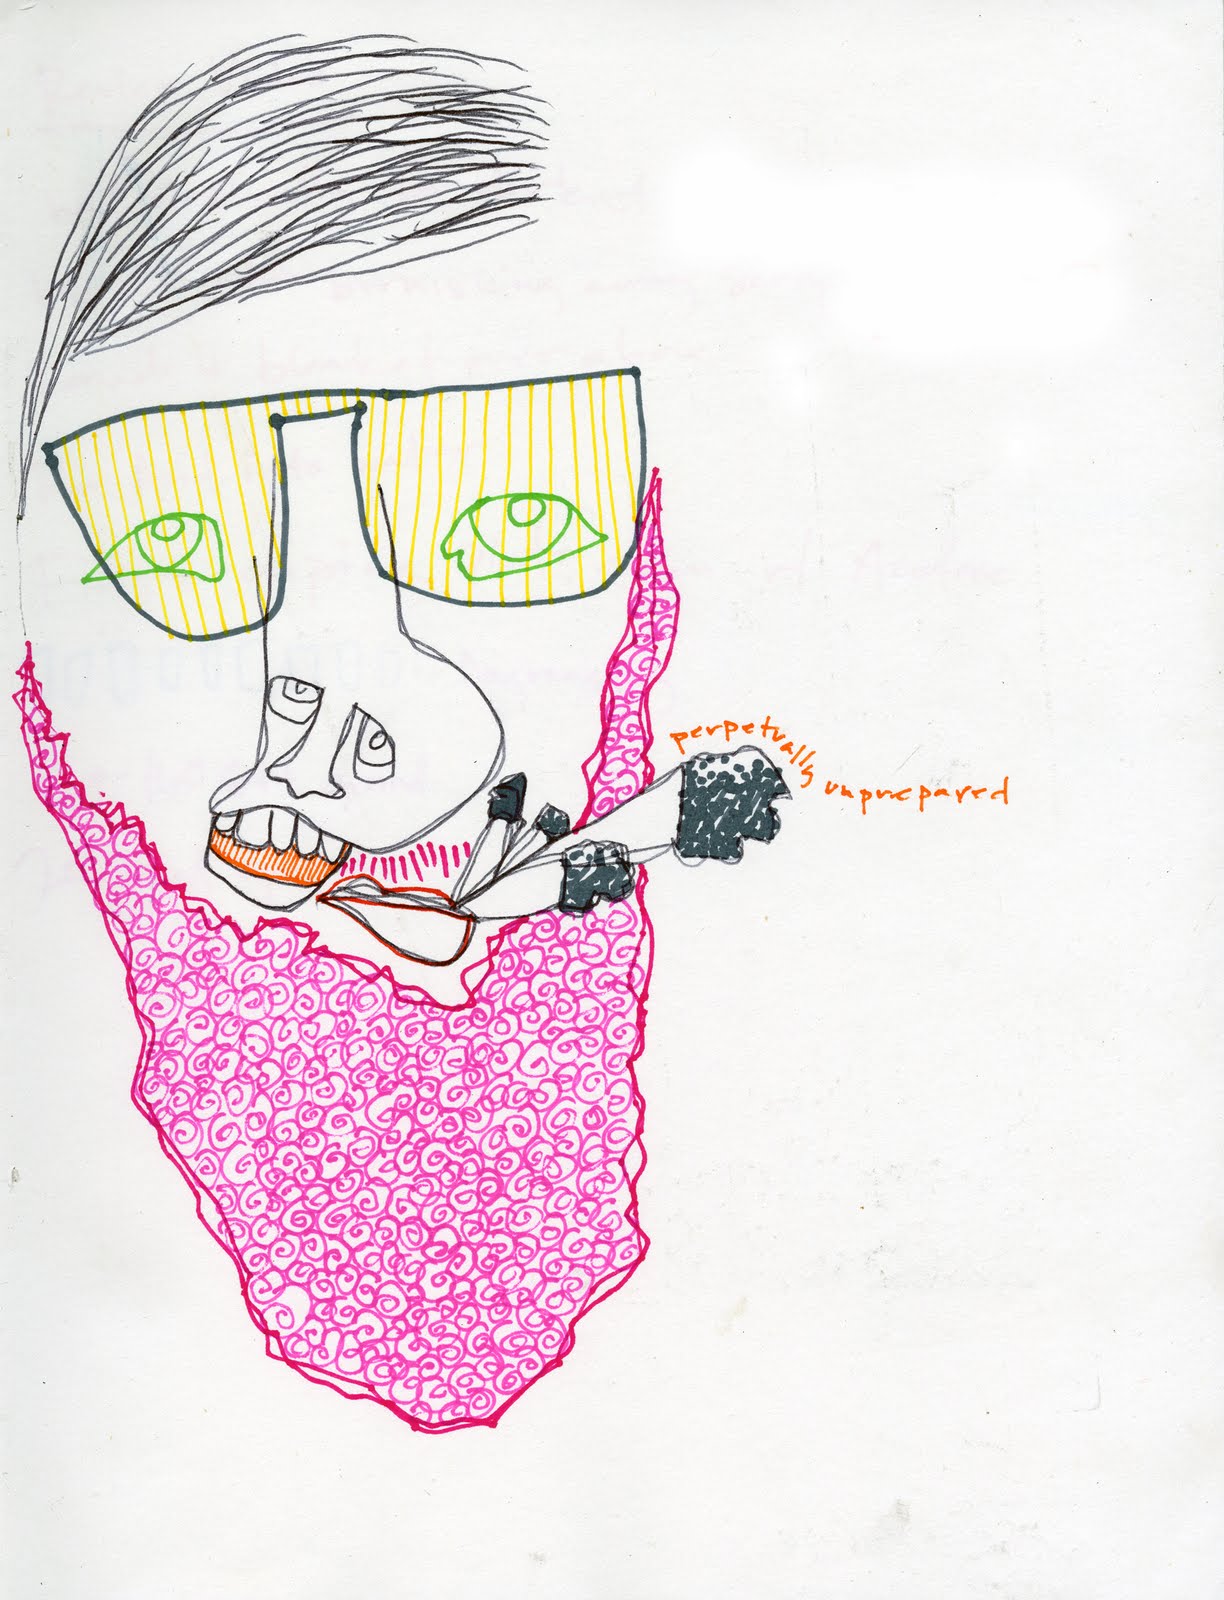 perpetually unprepared